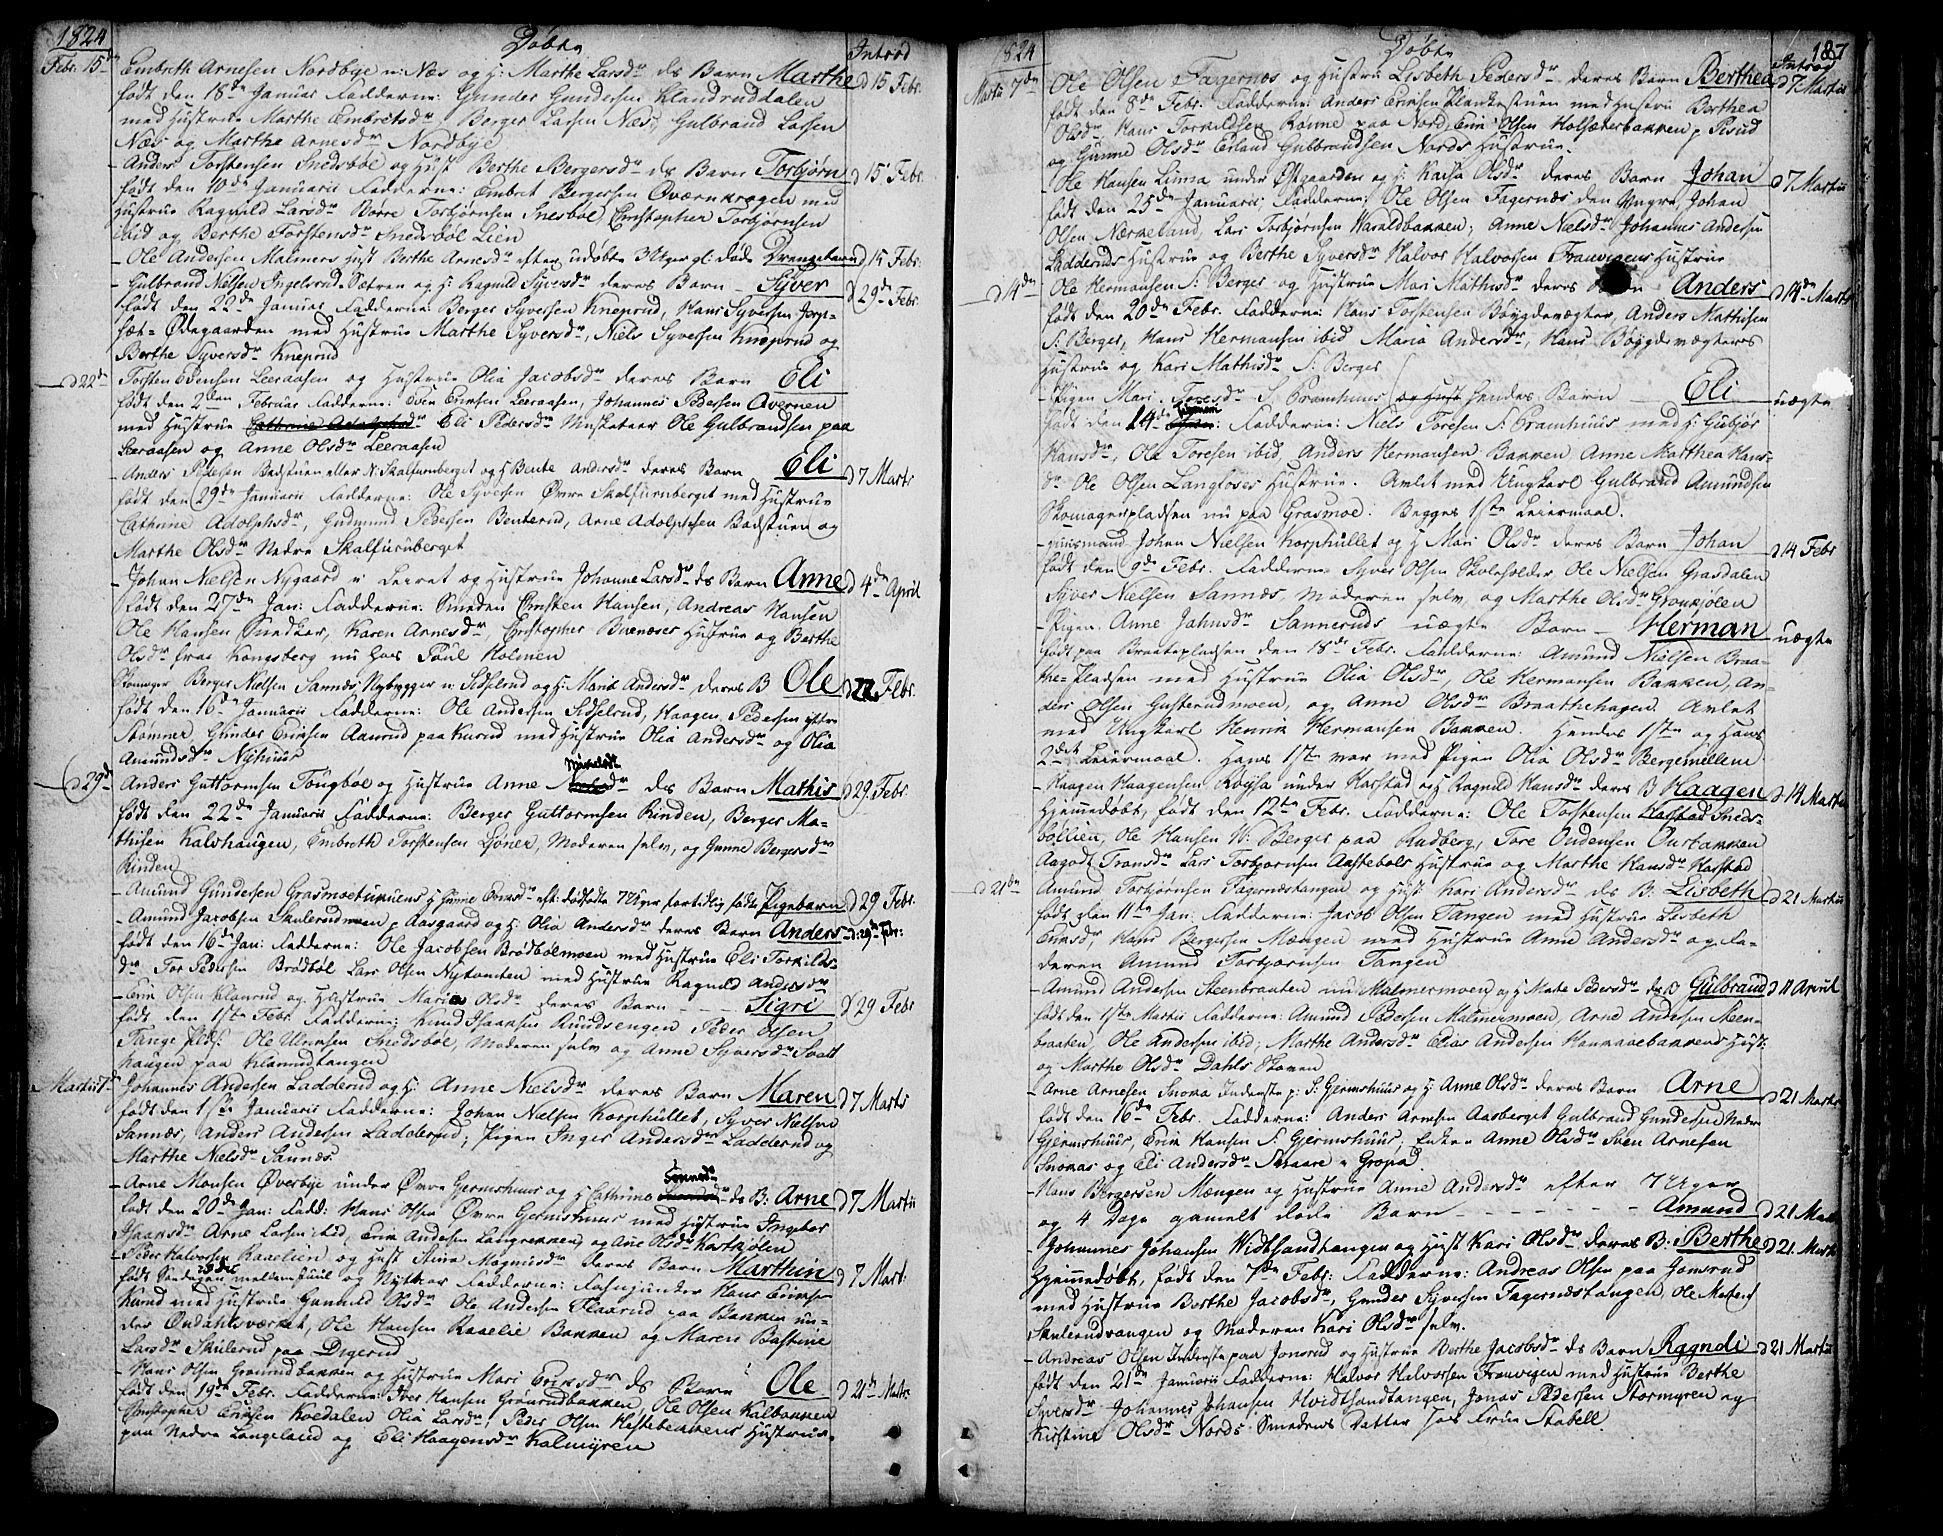 1824
Døbte
Introd
Febr. 15de
Embreth Arnesen Nordbye u: Næs og H: Marthe Larsdr ds Barn Marthe d 15 Febr.
født den 18de Januar Fadderne: Gunder Gundersen Klandruddalen
med Hustrue Marthe Embretsdr, Berger Larsen Næs, Gulbrand Larsen
Næs og Marthe Arnesdr Nordbye
Anders Torstensen Snedsbøl og Hust Berthe Bergersdr ds Barn Torbjørn d 15 Febr.
født den 10de Januarii Fadderne: Embret Bergersen Overnkragen med
Hustrue Ragnild Larsdr Børre Torbjørnsen Snesbøl Christopher Torbjørnsen
ibid og Berthe Torstensdr Snedsbøl Lien
Ole Andersen Malmers Hust Berthe Arnesdr efter udøbte 3 Uger gl: døde Drengebarn d 15 Febr.
Gulbrand Nielsen Ingelsrud Setren og H: Ragnild Syversdr deres Barn Syver d 29de Febr.
født den 22de Januar Fadderne: Berger Syversen Kneprud, Hans Syversen
Ødegaarden med Hustrue Marthe Syversdr, Niels Syversen Kneprud og
Berthe Syversdr Kneprud
d 22de
Torsten Evensen Leeraasen og Hustrue Olia Jacobsdr deres Barn Eli
født den 2den Februar Fadderne: Even Evensen Leeraasen, Johannes Pedersen Avernen
med Hustrue Eli Pedersdr Musketeer Ole Gulbrandsen paa
Leeraasen og Anne Olsdr Leeraasen
Anders Pedersen Badstuen eller N: Skalfurnberget og H Bente Andersdr deres Barn Eli d 7 Marts
født den 29de Januarii Fadderne: Ole Syversen Øvre Skalfurnberget med Hustrue
Cathrine Adolphsdr, Gudmund Pedersen Benterud, Arne Adolphsen Badstuen og
Marthe Olsdr Nedre Skalfurnberget
Johan Nielsen Nygaard u: Leeret og Hustrue Johanne Larsdr ds Barn Anne d 4de April
født den 27de Jan: Fadderne: Smeden Christen Hansen, Andreas Hansen
Ole Hansen Snedker, Karen Arnesdr Christopher Buenæses Hustrue og Berthe
Olsdr fraa Kongsberg nu hos Poul Holmen
Skomager Berger Nielsen Sannes, Nybygger u: Sidselrud og H: Marit Andersdr deres B Ole d 22 Febr.
født den 16de Januarii Fadderne: Ole Andersen Sidselrud, Haagen Pedersen
Stømner, Gunder Evensen Aamrud paa Kurud med Hustrue Olia Andersdr og Olia
Amundsdr Nyhuus
d 29de
Anders Guttormsen Tougbøl og Hustrue Anne ds Barn Mathis d 29 Febr.
født den 22de Januarii Fadderne: Berger Guttormsen Rinden, Berger Ma-
thisen Kalvhaugen, Embreth Torstensen Løner, Moderen selv, og Gunne Bergersdr
Rinden
Amund Gundersen Grasmoetunnens H Gunne eft: dødfødte 7 Uger fortidlig fødte Pigebarn d 29 Febr.
Amund Jacobsen Skulerudmoen p Aasgaard og H: Olia Andersdr deres Barn Anders d: 29de Febr:
født den 16de Jan: Fadderne: Ole Jacobsen Brødbølmoen med Hustrue Eli Torkilds-
dr Tor Pedersen Brødbøl Lars Olsen Nytomten med Hustrue Ragnild Andersdr
Erik Olsen Klanrud og Hustrue Maria Olsdr deres Barn Sigri d 29 Febr
født den 1ste Febr. Fadderne: Knud Isaaksen Rundsengen Peder Olsen
Tange Ole Ulersen Snedsbøl, Moderen selv og Anne Syversdr Svatt
haugen paa Klanrudtangen
Martii 7de
Johannes Andersen Ladderud og H: Anne Nielsdr deres Barn Maren d 7 Marts
født den 1ste Januarii Fadderne: Johan Nielsen Korphullet, Syver Nielsen
Sannæs, Anders Andersen Ladderud; Pigen Inger Andersdr Ladderud og
Marthe Nielsdr Sannæs.
Arne Monsen Øverbye under Øvre Gjermshuus og H Cathrine ds B: Arne d 7 Martii
født den 20de Jan: Fadd: Hans Olsen Øvre Gjermshuus med Hustrue Ingebor
Isaaksdr Arne Larsen ibid, Erik Andersen Langrekken, og Ane Olsdr Kortkjølen
Peder Halvorsen Raaelien og Hust Stina Magnusdr deres Barn Marthin d 7 Mart:
født Søndagen mellem Juul og Nytaar Fadderne: Hans
Kurud med Hustrue Gunnild Olsdr Ole Andersen Flaarud paa Bakken un-
der Ondalsværket, Ole Hansen Raaelie Bakken og Maren Bastine
Larsdr Skulerud paa Digerud
Hans Olsen Grønrudbakken og Hustrue Mari Eriksdr ds Barn Ole d 21de Marts
født den 19de Febr. Fadderne: Iver Hansen Grønrudbakken, Ole Olsen Kalbakken
Christopher Eriksen Koedalen Olia Larsdr, Peder Olsen Hestebekkens Hustrue
paa Nedre Langeland og Eli Haagensdr Kalmyren
1824
Døbte
187
Introd
Martii 7de
Ole Olsen Fagernæs og Hustrue Lisbeth Pedersdr deres Barn Berthea d 7 Martii
født den 8de Febr. Fadderne: Anders Eriksen Plankestuen med Hustrue Berthea
Olsdr, Hans Torkildsen Rønne paa Nord, Erik Olsen Holseterbakken p Pisud
og Gunne Olsdr Erland Gulbrandsen Nords Hustrue.
Ole Hansen Linna under Østgaarden og H: Kaisa Olsdr deres Barn Johan d 7 Martii
født den 25de Januarii Fadderne: Ole Olsen Fagernæs den Yngre Johan
Olsen Nærneland, Lars Torbjørnsen Haraldbakken; Anne Nielsdr Johannes Andersen
Ladderuds Hustrue og Berthe Syversdr Halvor Halvorsen Frauvigens Hustrue
d 14de
Ole Hermansen S: Berger og Hustrue Mari Mathisdr deres Anders d 14de Marts
født den 20de Febr. Fadderne: Hans Torstensen Bøygdevægter, Anders Mathisen
S: Berger, Hans Hermansen ibid Maria Andersdr, Hans Bøygdevægteres
Hustrue og Kari Mathisdr S: Berger
Pigen Mari Toresdr S. Cramhuus hendes Barn Eli uægte
født den 14de Fadderne: Niels Toresen S: Cramhuus med H: Gubjør
Hansdr, Ole Toresen ibid, Anders Hermansen Bakken Anne Marthea Hans-
dr Ole Olsen Langloses Hustrue. Avlet med Ungkarl Gulbrand Amundsen
Skomagerpladsen nu paa Grasmoe: Begges 1ste Leiermaal.
Huusmand Johan Nielsen Korphullet og H Mari Olsdr deres Barn Johan d 14 Febr
født den 9de Febr. Fadderne Syver Olsen Skoleholder Ole Nielsen Grasdalen
Syver Nielsen Sannæs, Moderen selv, og Marthe Olsdr Grankjølen
Pigen Anne Jahnsdr Sanneruds uægte Barn Herman uægte
født paa Braatepladsen den 18de Febr. Fadderne: Amund Nielsen Braa-
the-pladsen med Hustrue Olia Olsdr, Ole Hermansen Bakken, An-
ders Olsen Gusterudmoen, og Anne Olsdr Braathehagen. Avlet
med Ungkarl Henrik Hermansen Bakken. Hendes 1ste og Hans
2det Leiermaal. Hans 1ste var med Pigen Olia Olsdr Bergemellem
Haagen Haagensen Røysa under Harstad og H Ragnild Hansdr deres B Haagen d 14 Martii
Hjemmedøbt, født den 12te Febr. Fadderne: Ole Torstensen Harstad Sneds-
bøllien, Ole Hansen N: Berger paa Rudberg, Tore Ondensen Ourbakken
Aagodt Fransdr Lars Torbjørnsen Aastebøls Hustrue og Marthe Hansdr Harstad
d 21de
Amund Torbjørnsen Fagernæstangen og Hust Kari Andersdr ds B: Lisbeth d 21 Martii
født den 11te Jan: Fadderne: Jacob Olsen Tangen med Hustrue Lisbeth
Eriksdr, Hans Bergersen Mængen med Hustrue Anne Andersdr og Fa-
deren Amund Torbjørnsen Tangen
Amund Andersen Steenbraaten nu Malmermoen og H Marte Pedersdr ds B Gulbrand d 11 April
født den 1ste Martii Fadderne: Amund Pedersen Malmermoen, Arne Andersen Steen-
braaten, Ole Andersen ibid, Marthe Andersdr Elias Andersen Hannanebakkens Hust:
og Marthe Olsdr Dahls Skoven
Arne Arnesen Snoxa Inderste p: S: Gjermshuus og H Anne Olsdr deres Barn Arne d 21 Marts
født den 16de Febr. Fadderne: Anders Arnesen Aasberget Gulbrand Gundersen Nedre
Gjermshuus, Erik Hansen S. Gjermshuus, Enken Anne Olsdr Sven Arnesen
Snoxas og Eli Andersdr Skaare u Gropa
Hans Bergersen Mængen og Hustrue Anne Andersdr efter 7 Uger
og 4 Dage gamelt døde Barn Amund d 21 Marts
Johannes Johansen Widtsandtangen og Hust Kari Olsdr deres B: Berthe d 21 Marts
Hjemmedøbt, født den 7de Febr: Fadderne: Andreas Olsen paa Jonsrud
med Hustrue Berthe Jacobsdr, Gunder Syversen Fagernæstangen, Ole
Skulerudvangen og Moderen Kari Olsdr selv.
Andreas Olsen Inderste paa Jonsrud og Hustrue Berthe Jacobsdr ds Barn Ragnde d 21 Martii
født den 21de Januarii Fadderne: Halvor Halvorsen Frauvigen med Hustrue Berthe
Syversdr Johannes Johansen Hvidtsandtangen, Jonas Pedersen Stormyren og
Kirstine Olsdr Nords Smedens Datter hos Frue Stabell